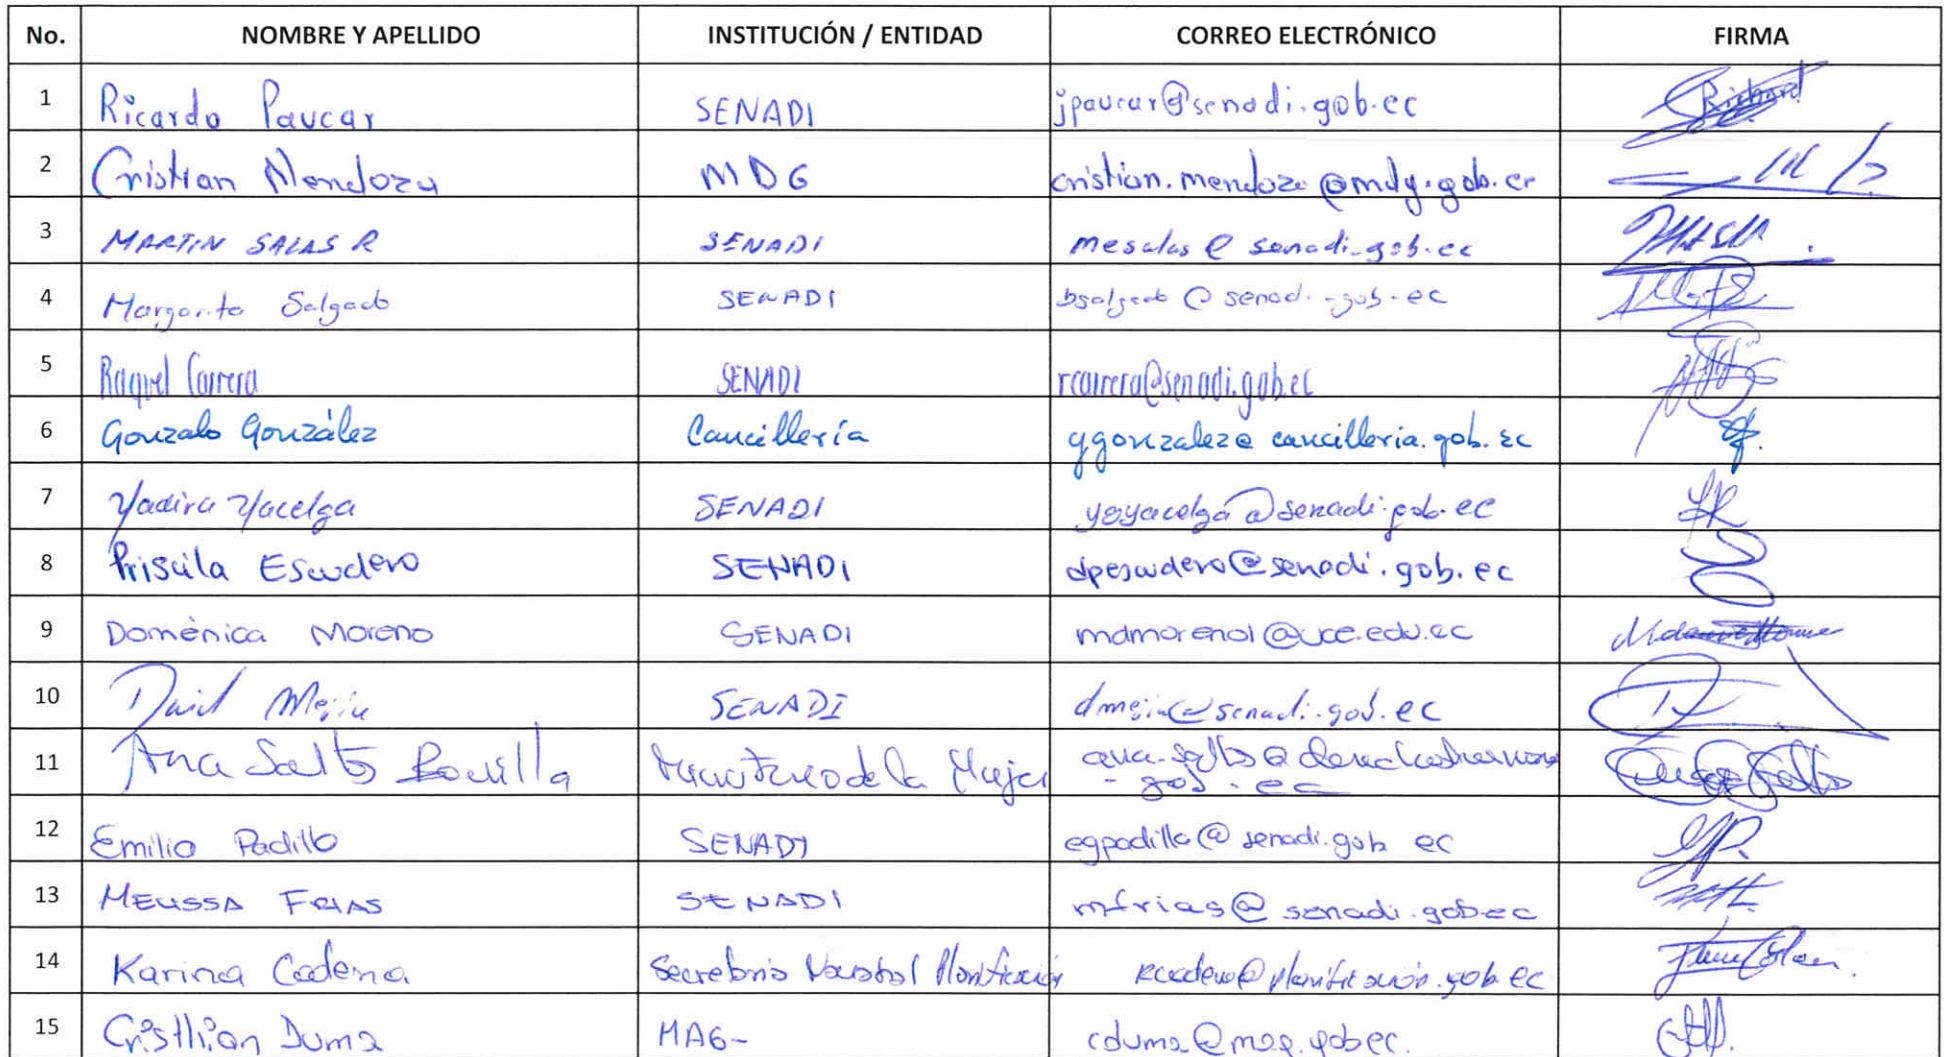 No. NOMBRE Y APELLIDO INSTITUCIÓN / ENTIDAD CORREO ELECTRÓNICO FIRMA
1 Ricardo Paucar SENADI jpaucar@senadi.gob.ec
2 Cristian Mendoza MDG cristian.mendoza@mdg.gob.ec
3 MARTIN SALAS R SENADI mesalas@senadi.gob.ec
4 Margarita Salgado SENADI bsalgado@senadi.gob.ec
5 Raquel Carrera SENADI rcarrera@senadi.gob.ec
6 Gonzalo González Cancillería ggonzalez@cancilleria.gob.ec
7 Yadira Yacelga SENADI yoyacelga@senadi.gob.ec
8 Priscila Escudero SENADI dpescudero@senadi.gob.ec
9 Doménica Moreno SENADI mdmoreno1@uce.edu.ec
10 David Mejía SENADI dmejia@senadi.gob.ec
11 Ana Salto Bonilla Ministerio de la Mujer
gob.ec
12 Emilio Padilla SENADI egpadilla@senadi.gob ec
13 MELISSA FRIAS SENADI mfrias@senadi.gob.ec
14 Karina Cadena Secretaria Nacional Planificación kcadena@planificación.gob.ec
15 Cristhian Duma MAG- cduma@mag.gob.ec.